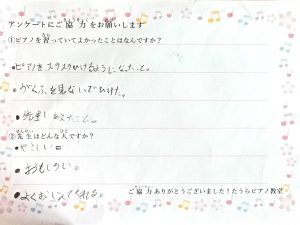 アンケートにご協力をお願いします
①ピアノを習っていてよかったことはなんですか?
・ピアノをスラスラひけるようになったこと。
・がくふを見ないでひけた。
・先生に
こと。
②先生はどんな人ですか?
せんせい ひと
・やさしい
・おもしろい。
・よくおしえてくれる。
ご協力ありがとうございました!たうらピアノ教室